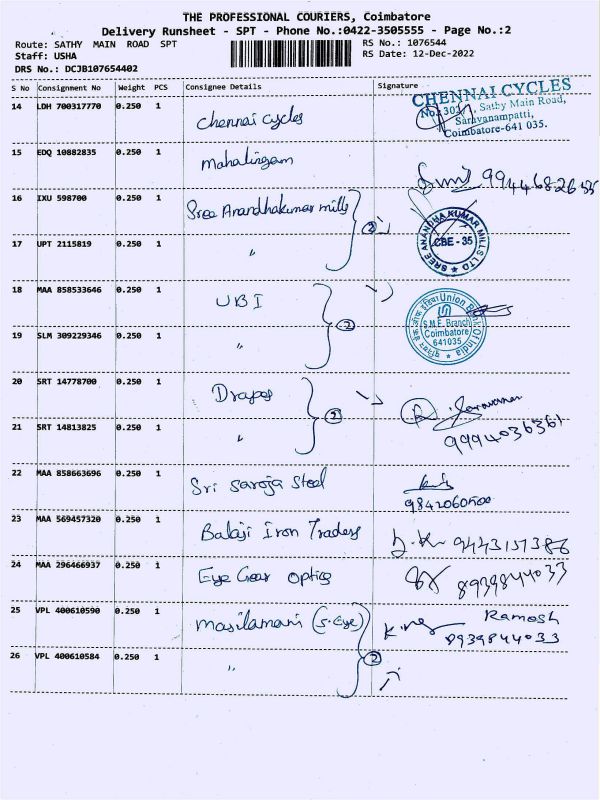 THE PROFESSIONAL COURIERS, Coimbatore
Delivery Runsheet - SPT - Phone No.:0422-3505555 - Page No.:2
Route: SATHY MAIN ROAD SPT
RS No.: 1076544
Staff: USHA
RS Date: 12-Dec-2022
DRS No.: DCJB107654402
S No Consignment No Weight PCS Consignee Details Signature
14 LDH 700317770 0.250 1 Chennai Cycles
CHENNAI CYCLES
No. 301, Sathy Main Road,
Saravanampatti,
Coimbatore-641 035.
15 EDQ 10882835 0.250 1 Mahalingam
16 IXU 598700 0.250 1 Sree Anandhakumar mills
2
SREE ANANDHA KUMAR MILLS LTD
CBE - 35
17 UPT 2115819 0.250 1 "
18 MAA 858533646 0.250 1 UBI
2
Union Bank Of India
S.M.E. Branch
Coimbatore
641035
19 SLM 309229346 0.250 1 "
20 SRT 14778700 0.250 1 Drapes
2
21 SRT 14813825 0.250 1 "
9994036361
22 MAA 858663696 0.250 1 Sri Saroja Steel
9842060500
23 MAA 569457320 0.250 1 Balaji Iron Traders
24 MAA 296466937 0.250 1 Eye Gear Optics 8939844033
25 VPL 400610590 0.250 1 Masilamani (S.Eye) Ramesh
8939844033
2
26 VPL 400610584 0.250 1 "